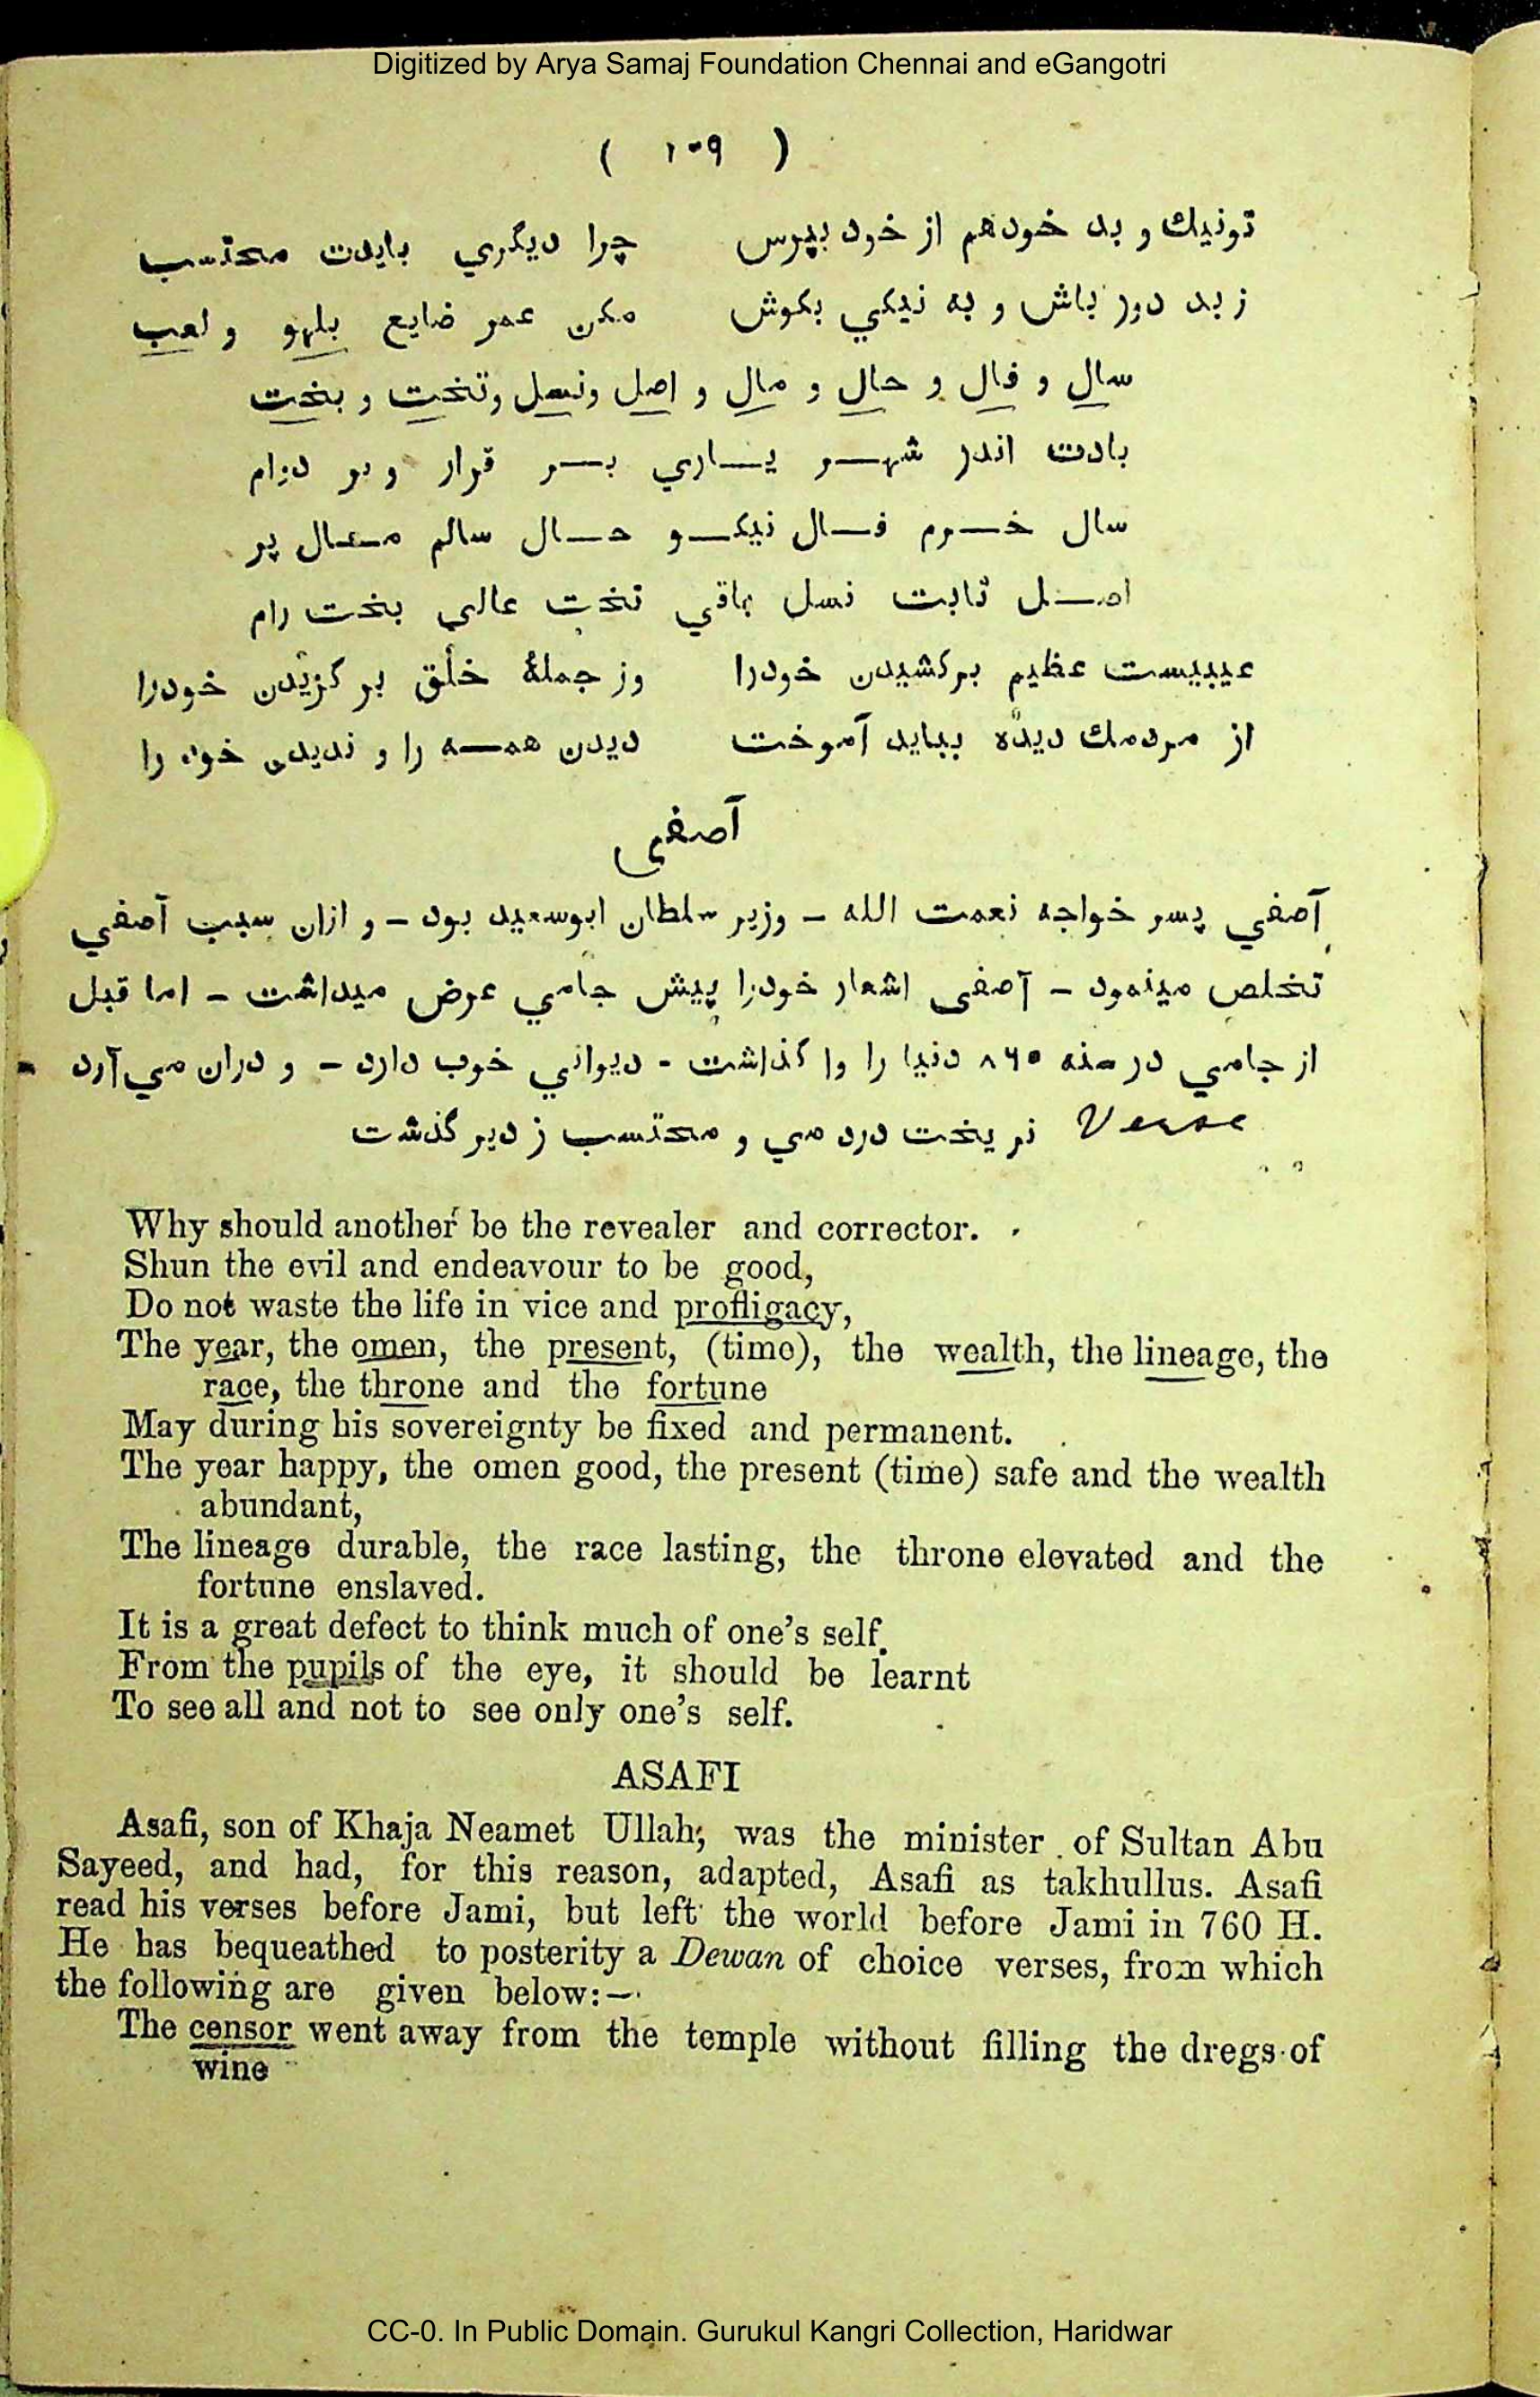 Digitized by Arya Samaj Foundation Chennai and eGangotri
( ۱۰۹ )
تونيك و بد خودهم از خود بپرس چرا ديگري بايدت محتسب
ز بد دور باش و به نيكي بكوش مكن عمر ضايع بلهو و لعب
سال و فال و حال و مال و اصل ونسل وتخت و بخت
بادت اندر شهر ياري بر قرار و بر دوام
سال خرم فال نيكو حال سالم مال پر
اصل ثابت نسل باقي تخت عالي بخت رام
عيبيست عظيم بركشيدن خودرا وز جملهٔ خلق بر گزيدن خودرا
از مردمك ديده ببايد آموخت ديدن همه را و نديدن خود را
آصفي
آصفي پسر خواجه نعمت الله – وزير سلطان ابوسعيد بود – و ازان سبب آصفي
تخلص مينمود – آصفي اشعار خودرا پيش جامي عرض ميداشت – اما قبل
از جامي در سنه ۸۶۰ دنيا را وا گذاشت - ديواني خوب دارد – و دران مي آرد -
Verse نر يخت درد مي و محتسب ز دير گذشت
Why should another be the revealer and corrector.
Shun the evil and endeavour to be good,
Do not waste the life in vice and profligacy,
The year, the omen, the present, (time), the wealth, the lineage, the
race, the throne and the fortune
May during his sovereignty be fixed and permanent.
The year happy, the omen good, the present (time) safe and the wealth
abundant,
The lineage durable, the race lasting, the throne elevated and the
fortune enslaved.
It is a great defect to think much of one's self.
From the pupils of the eye, it should be learnt
To see all and not to see only one's self.
ASAFI
Asafi, son of Khaja Neamet Ullah; was the minister of Sultan Abu
Sayeed, and had, for this reason, adapted, Asafi as takhullus. Asafi
read his verses before Jami, but left the world before Jami in 760 H.
He has bequeathed to posterity a Dewan of choice verses, from which
the following are given below:—
The censor went away from the temple without filling the dregs of
wine
CC-0. In Public Domain. Gurukul Kangri Collection, Haridwar